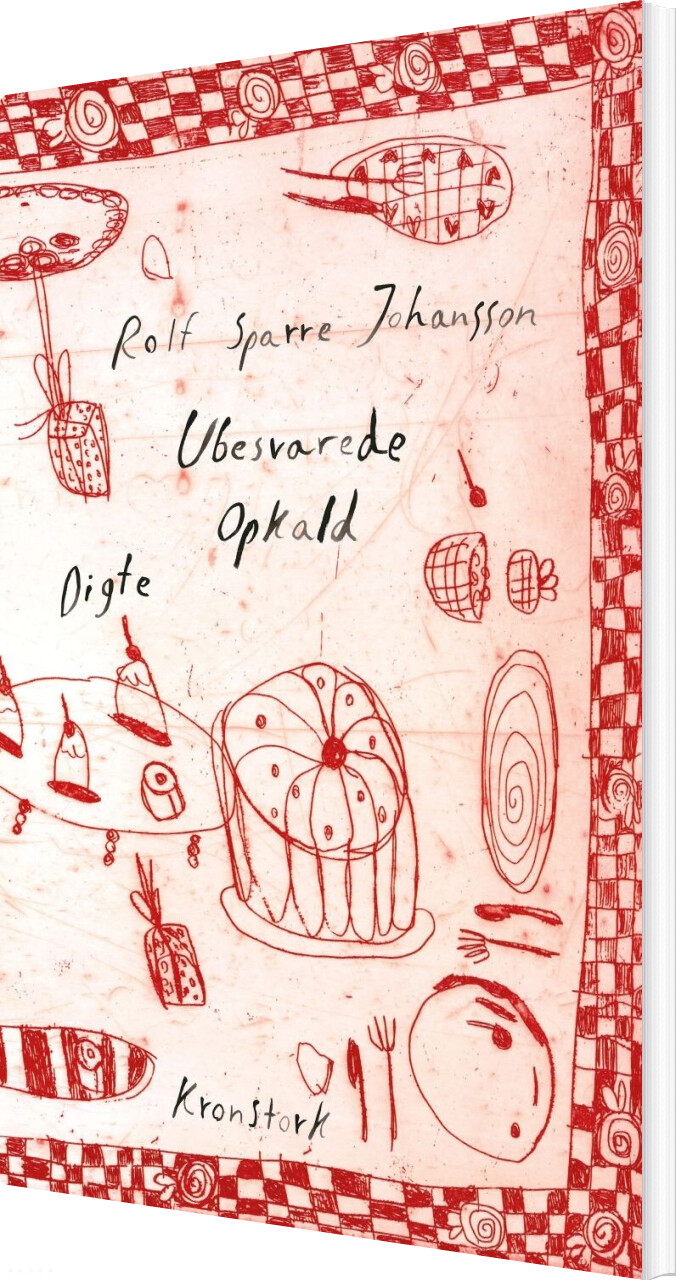 Rolf Sparre Johansson
Ubesvarede
Opkald
Digte
Kronstork